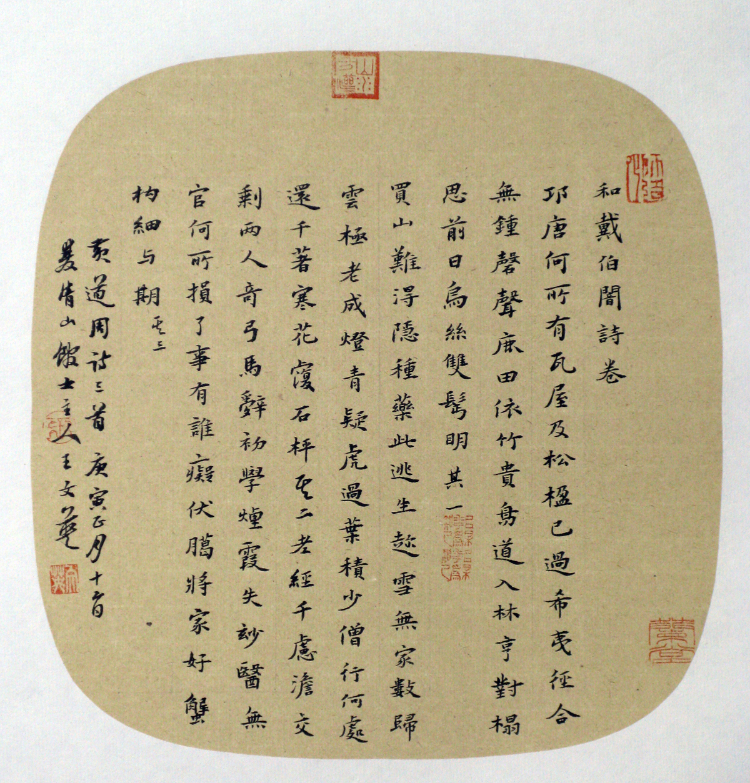 和戴伯闇詩卷
邛唐何所有瓦屋及松楹已過希夷徑合
無鍾磬聲鹿田依竹貴鳥道入林亨對榻
思前日烏絲雙髩明其一
買山難淂隱種藥此逃生趂雪無家數歸
雲極老成燈青疑虎過葉積少僧行何處
還千著寒花覆石枰其二老經千慮澹交
剩兩人奇弓馬辭初學煙霞失玅醫無
官何所損了事有誰癡伏臈將家好蟹
杓細与期其三
黃道周詩三首庚寅正月十首
山館主人王文英